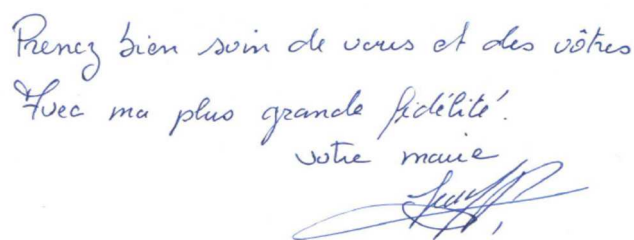 Prenez bien soin de vous et des vôtres
Avec ma plus grande fidélité.
votre maire